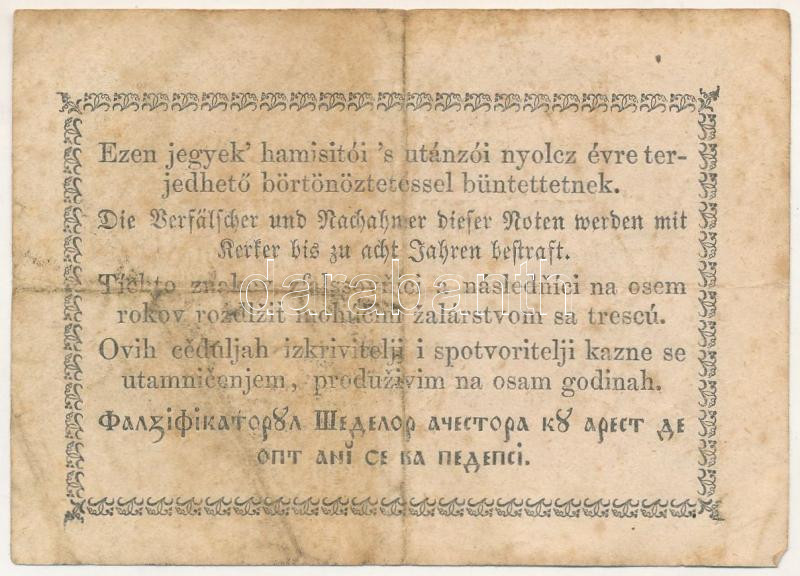 Ezen jegyek’ hamisitói ’s utánzói nyolcz évre ter-
jedhető börtönöztetéssel büntettetnek.
Die Verfälscher und Nachahmer dieser Noten werden mit
Kerker bis zu acht Jahren bestraft.
darabanth
na osem
rokov žalárstvom sa trescú.
Ovih cědúljah izkrivitelji i spotvoritelji kazne se
utamničenjem, produživim na osam godinah.
Фалꙅіфікаторꙋл Шеделор ачестора кꙋ арест де
опт анї се ва педепсі.